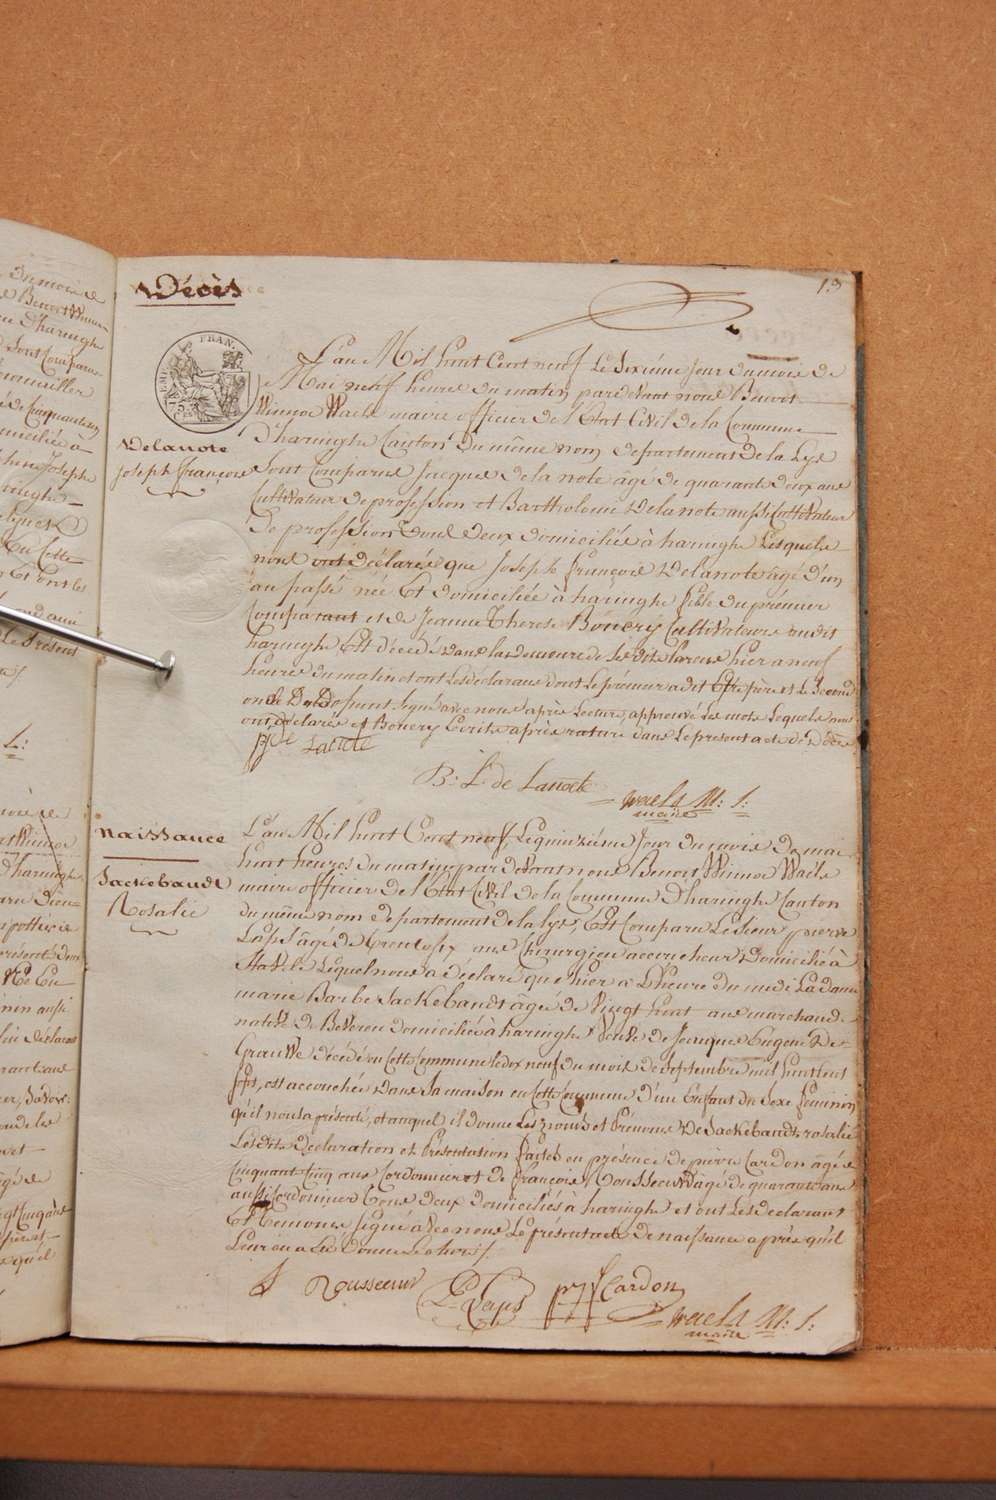 13
Décès
L'an Mil huit Cent neuf Le Sixième jour du mois de
Mai neuf heures du matin pardevant nous Benoit
Winnoc Waels maire officier de l'Etat Civil de la Commune
Delanote
D'haringhe Canton du même nom departement de la Lys
Joseph François
Sont Comparus Jacques de la note agé de quarante deux ans
Cultivateur de profession et Bartholomé Delanote aussi Cultivateur
De profession tous deux domiciliés à haringhe Lesquels
nous ont déclarés que Joseph François Delanote âgé d'un
an passé née Et domiciliée à haringhe fils du prémier
Comparant et de Jeanne Therese Bonery Cultivateurs audit
haringhe Est décédé dans la demeure de ses dits parens hier a neuf
heures du matin et ont Les déclarans dont Le prémier a dit Etre père et Le Second
oncle Du Défunt Signé avec nous après Lecture, approuvé Les mots Lesquels nous
ont déclarés et Bonery Ecrits après rature dans Le présent acte de Décès
B: L. de Lanote
Waels M: S:
maire
naissance
Sackebandt
Rosalie
L'an Mil huit Cent neuf, Le quinzième Jour du mois de mai
huit heures du matin pardevant nous Benoit Winnoc Waels
maire officier de l'Etat Civil de la Commune D'haringhe Canton
du même nom departement de la lys, Est Comparu Le Sieur pierre
Leups âgé de trente six ans Chirurgien accoucheur Domicilié à
Stavele Lequel nous a déclaré que hier a L'heure du midi La dame
marie Barbe Sackebandt âgée de Vingt huit ans marchande
native de Beveren domiciliée à haringhe Veuve de Jacques Eugene De
Grauwe décédé en cette Commune le dix neuf du mois de Septembre mil huit cent
sept, est accouchée dans Sa maison en cette Commune d'un Enfant du Sexe feminin
qu'il nous a présenté, et auquel il donne Les noms et Prénoms De Sackebandt rosalie
Lesdits Déclaration et Présentation faites en présence de pierre Cardon agé de
Cinquant Cinq ans Cordonnier et de François Rousseeuw agé de quarante ans
aussi Cordonnier tous deux domiciliés à haringhe et ont Les déclarant
Et Temoins Signé avec nous Le présent acte de naissance après qu'il
Leur en a été Donné Lecture
f Rousseeuw
P. Leups
Cardon
Waels M: S:
maire